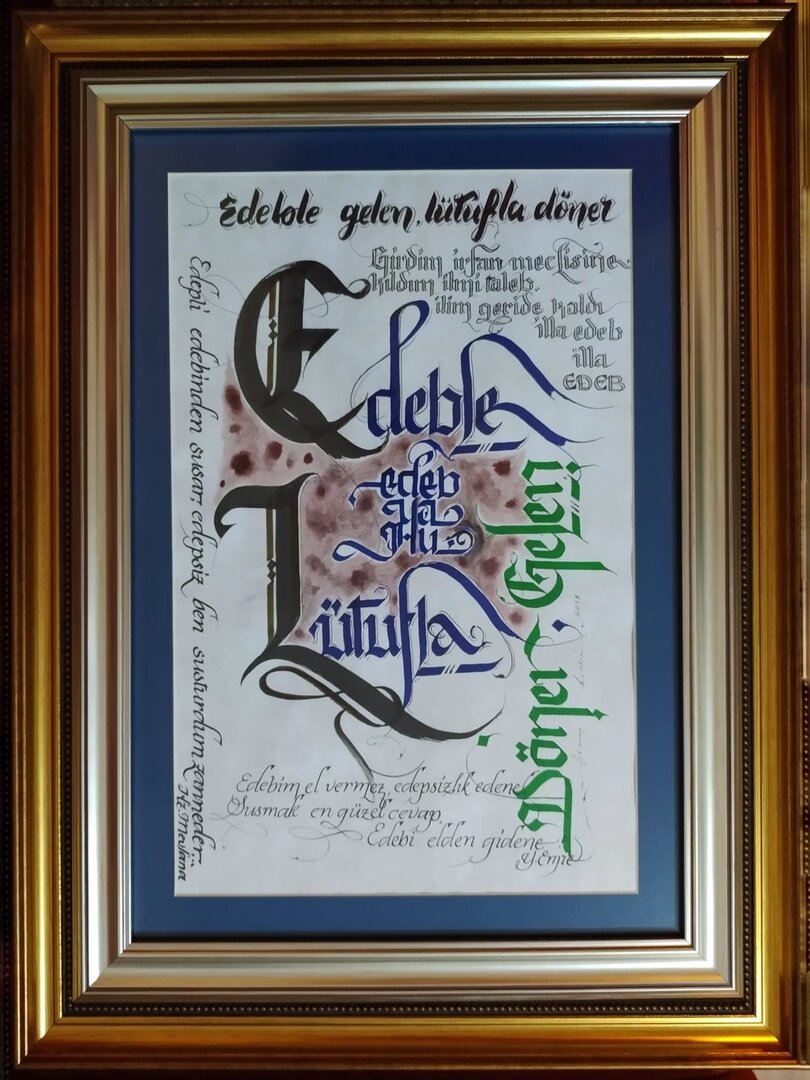 Edeble gelen, lütufla döner
Girdim irfan meclisine
kıldım ilmi taleb.
ilim geride kaldı
illa edeb
illa
EDEB
Edepli edebinden susar, edepsiz ben susturdum zanneder...
Hz. Mevlana
Edeble
edeb
Ya
Hu
Lütufla
Gelen
Döner
Edebim el vermez, edepsizlik edene
Susmak en güzel cevap,
Edebi elden gidene
Y. Emre